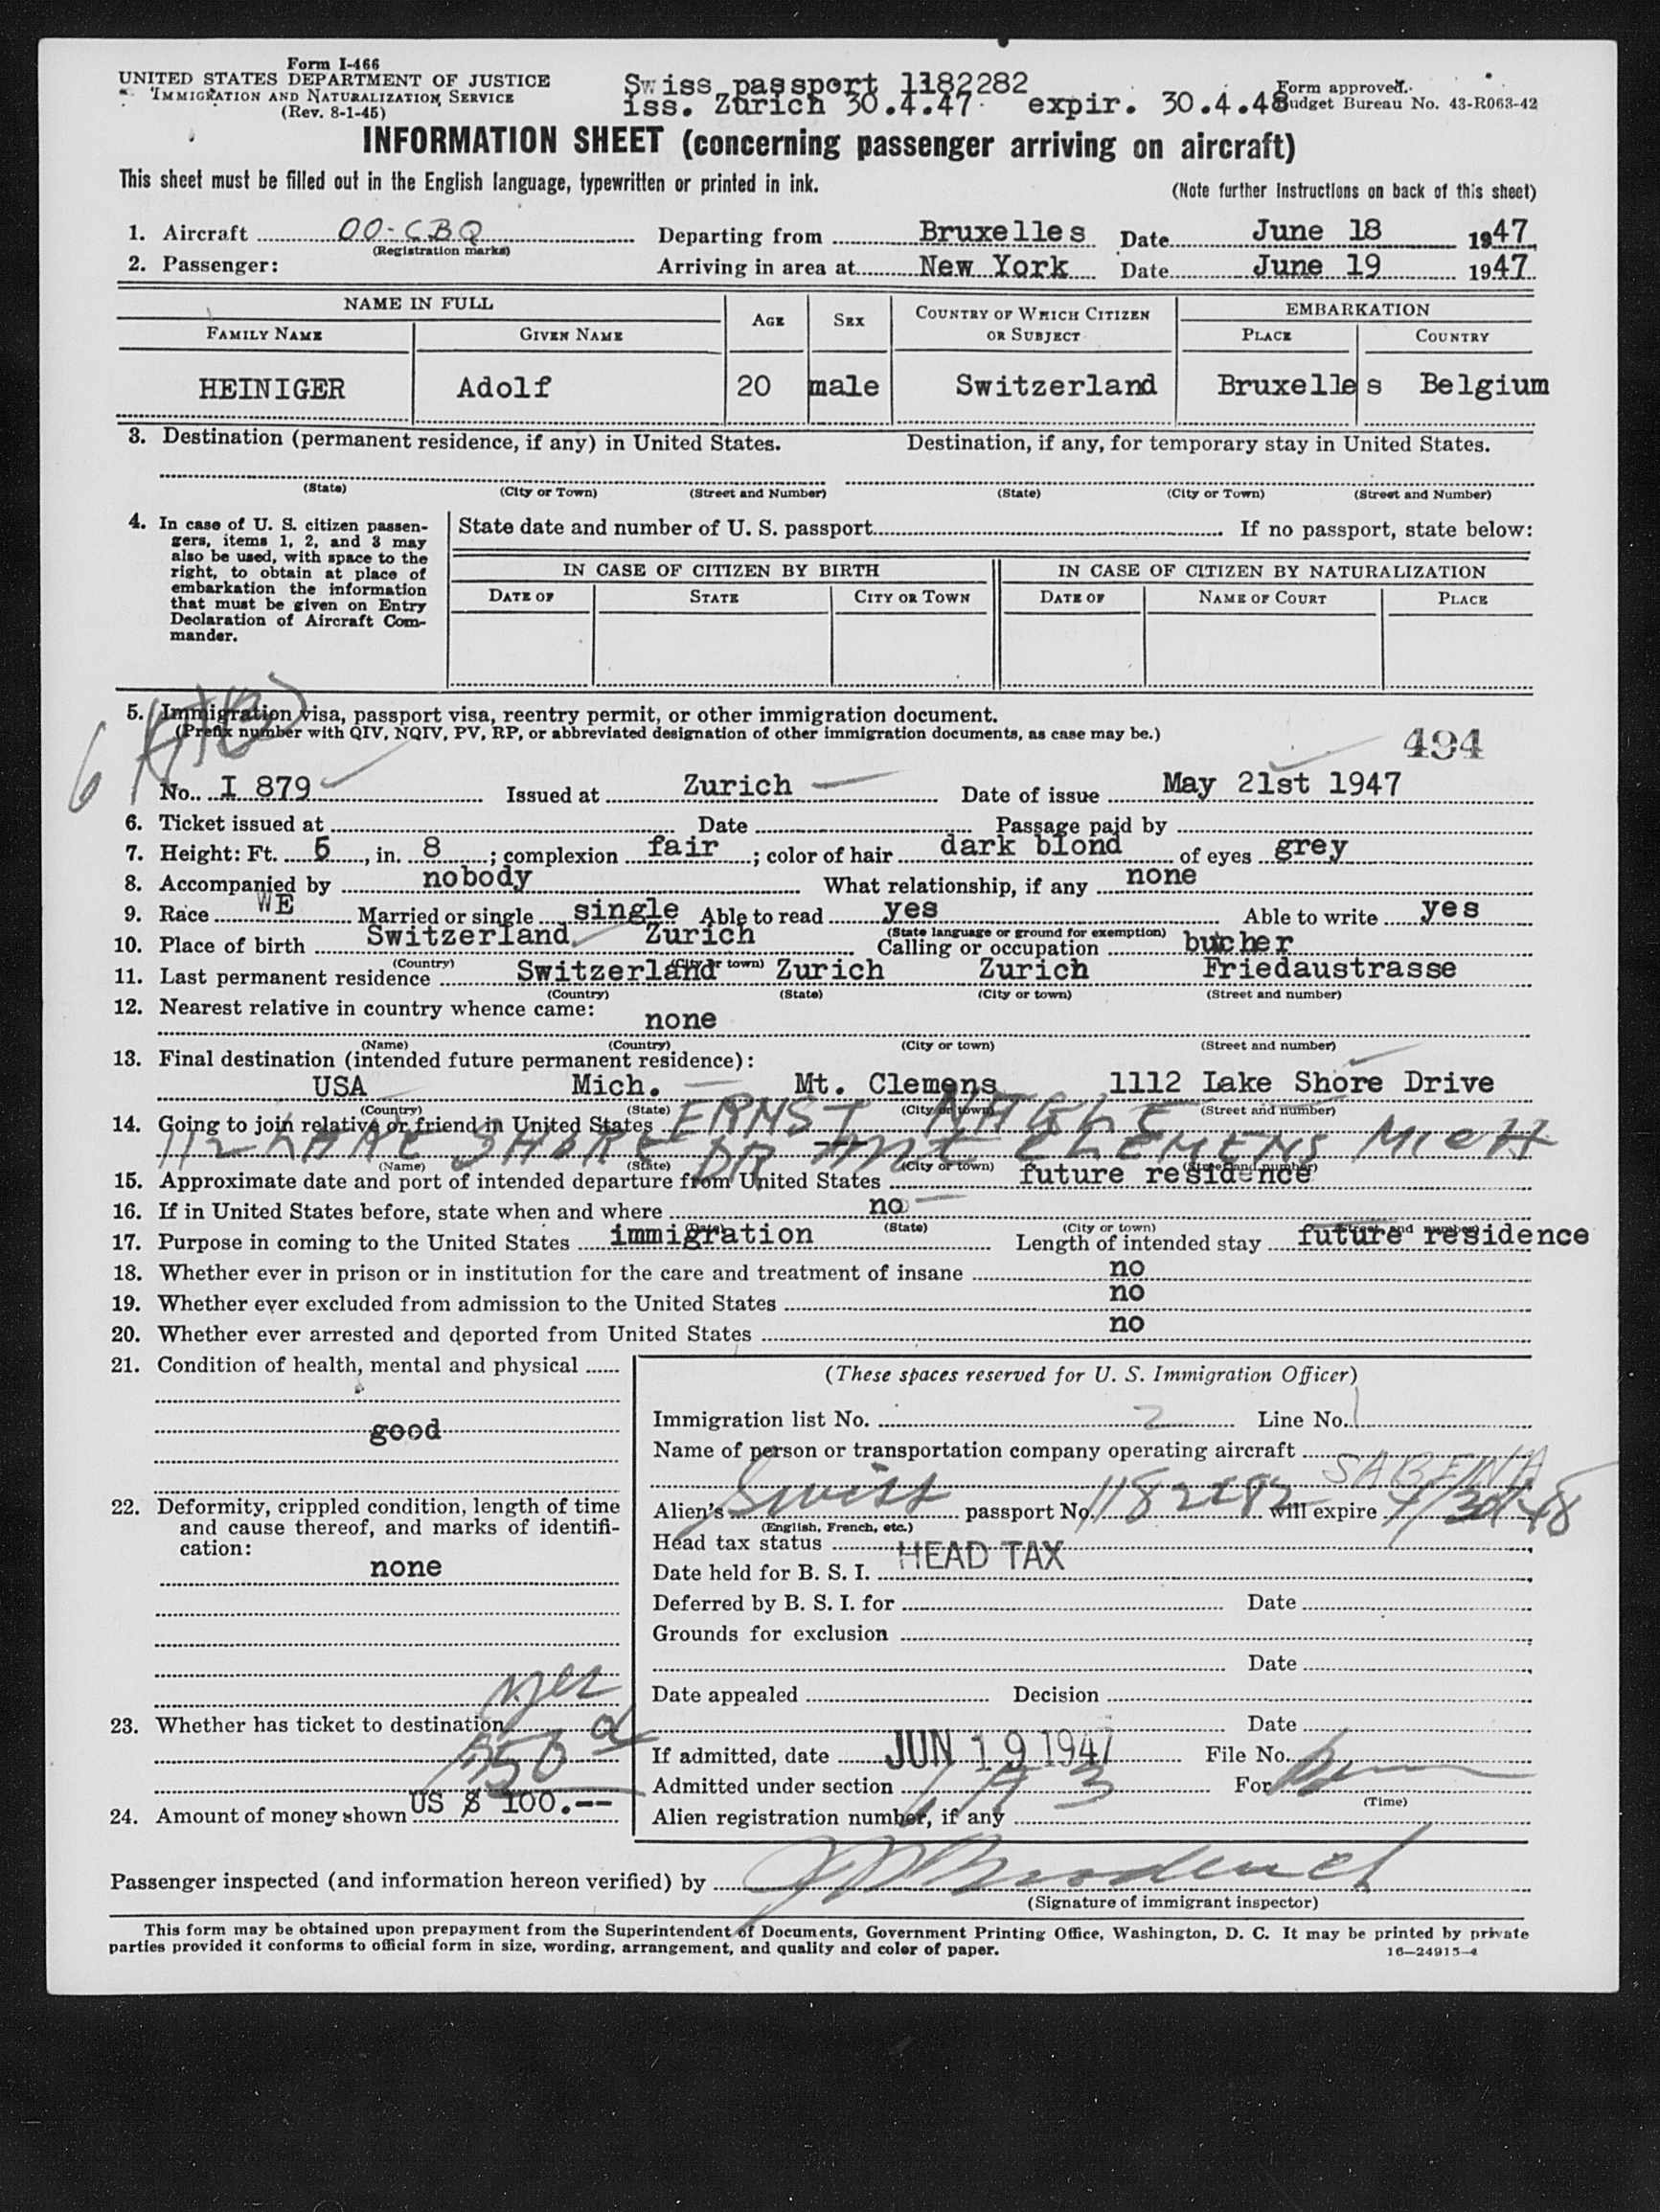 Form I-466
UNITED STATES DEPARTMENT OF JUSTICE
IMMIGRATION AND NATURALIZATION SERVICE
(Rev. 8-1-45)
Swiss passport 1182282
iss. Zurich 30.4.47 expir. 30.4.48
Form approved.
Budget Bureau No. 43-R063-42
INFORMATION SHEET (concerning passenger arriving on aircraft)
This sheet must be filled out in the English language, typewritten or printed in ink.
(Note further instructions on back of this sheet)
1. Aircraft OO-CBQ Departing from Bruxelles Date June 18 1947
(Registration marks)
2. Passenger: Arriving in area at New York Date June 19 1947
NAME IN FULL AGE SEX COUNTRY OF WHICH CITIZEN OR SUBJECT EMBARKATION
FAMILY NAME GIVEN NAME PLACE COUNTRY
HEINIGER Adolf 20 male Switzerland Bruxelles Belgium
3. Destination (permanent residence, if any) in United States. Destination, if any, for temporary stay in United States.
(State) (City or Town) (Street and Number) (State) (City or Town) (Street and Number)
4. In case of U. S. citizen passen-
gers, items 1, 2, and 3 may
also be used, with space to the
right, to obtain at place of
embarkation the information
that must be given on Entry
Declaration of Aircraft Com-
mander.
State date and number of U. S. passport If no passport, state below:
IN CASE OF CITIZEN BY BIRTH IN CASE OF CITIZEN BY NATURALIZATION
DATE OF STATE CITY OR TOWN DATE OF NAME OF COURT PLACE
5. Immigration visa, passport visa, reentry permit, or other immigration document.
(Prefix number with QIV, NQIV, PV, RP, or abbreviated designation of other immigration documents, as case may be.)
494
No. I 879 Issued at Zurich Date of issue May 21st 1947
6. Ticket issued at Date Passage paid by
7. Height: Ft. 5, in. 8; complexion fair; color of hair dark blond of eyes grey
8. Accompanied by nobody What relationship, if any none
9. Race WE Married or single single Able to read yes Able to write yes
(State language or ground for exemption)
10. Place of birth Switzerland Zurich Calling or occupation bucher
(Country) (City or town)
11. Last permanent residence Switzerland Zurich Zurich Friedaustrasse
(Country) (State) (City or town) (Street and number)
12. Nearest relative in country whence came: none
(Name) (Country) (City or town) (Street and number)
13. Final destination (intended future permanent residence):
USA Mich. Mt. Clemens 1112 Lake Shore Drive
(Country) (State) (City or town) (Street and number)
14. Going to join relative or friend in United States ERNST NAGLE
112 LAKE SHORE DR MT CLEMENS MICH
(Name) (State) (City or town) (Street and number)
15. Approximate date and port of intended departure from United States future residence
16. If in United States before, state when and where no
(Date) (State) (City or town) (Street and number)
17. Purpose in coming to the United States immigration Length of intended stay future residence
18. Whether ever in prison or in institution for the care and treatment of insane no
19. Whether ever excluded from admission to the United States no
20. Whether ever arrested and deported from United States no
21. Condition of health, mental and physical
good
22. Deformity, crippled condition, length of time
and cause thereof, and marks of identifi-
cation:
none
yes
23. Whether has ticket to destination
24. Amount of money shown US $ 100.--
(These spaces reserved for U. S. Immigration Officer)
Immigration list No. 2 Line No. 1
Name of person or transportation company operating aircraft
SABENA
Alien's Swiss passport No. 1182282 will expire 4/30/48
(English, French, etc.)
Head tax status HEAD TAX
Date held for B. S. I.
Deferred by B. S. I. for Date
Grounds for exclusion
Date
Date appealed Decision
Date
If admitted, date JUN 19 1947 File No.
Admitted under section For
(Time)
Alien registration number, if any
Passenger inspected (and information hereon verified) by
(Signature of immigrant inspector)
This form may be obtained upon prepayment from the Superintendent of Documents, Government Printing Office, Washington, D. C. It may be printed by private
parties provided it conforms to official form in size, wording, arrangement, and quality and color of paper.
16—24915-4